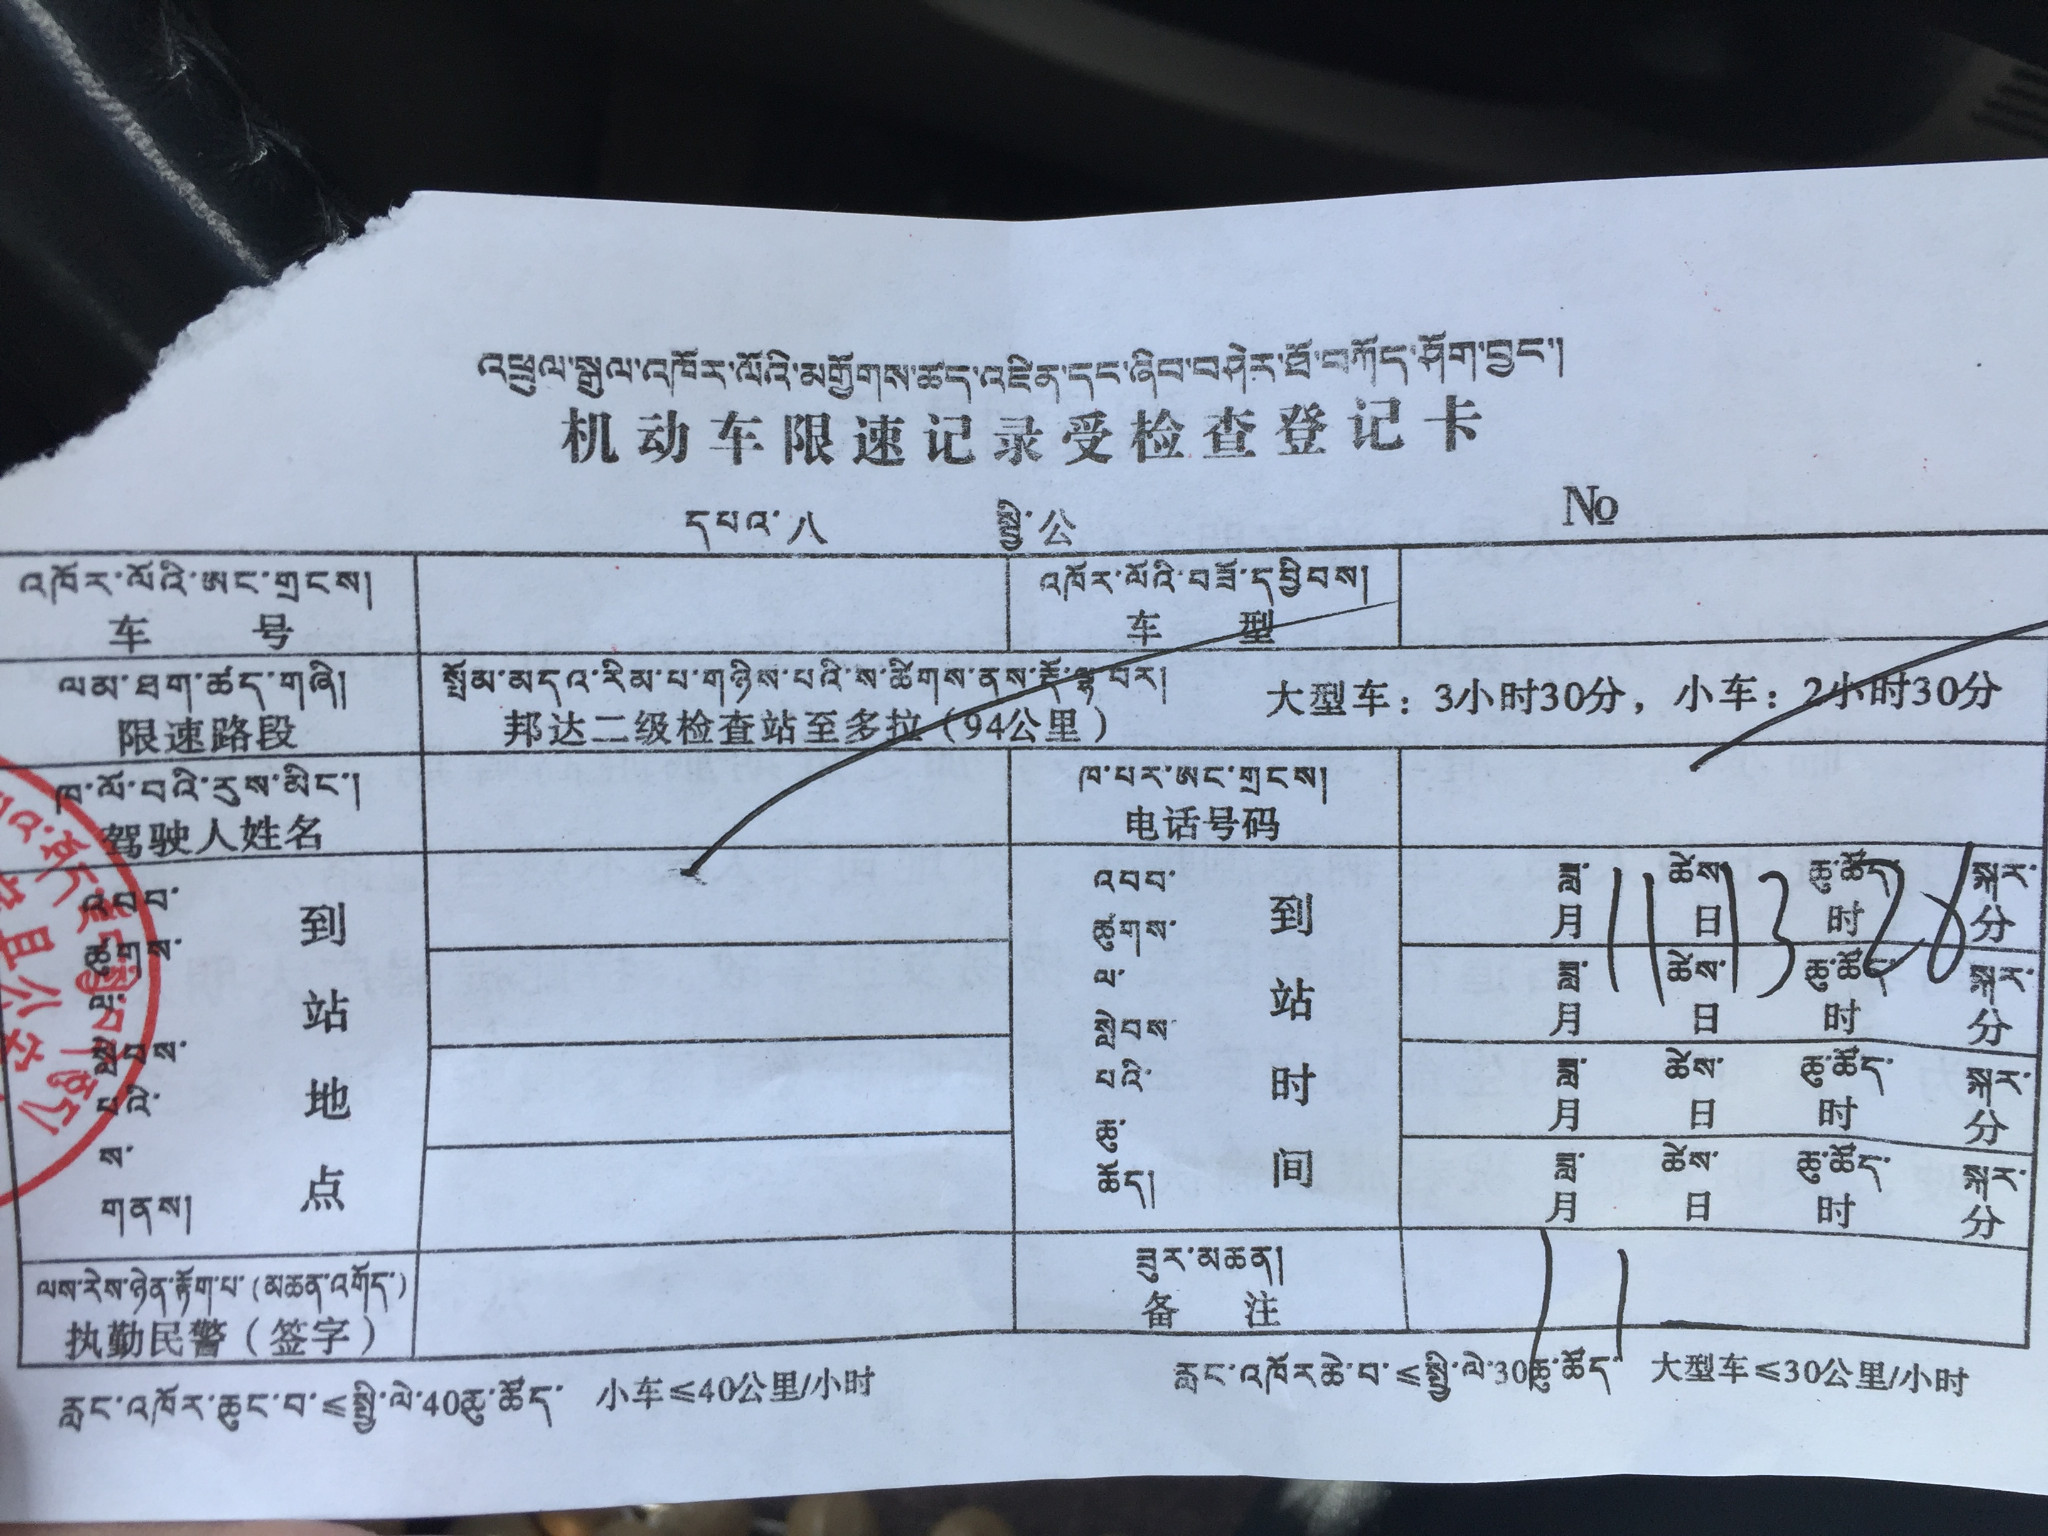 འཕྲུལ་སྒུལ་འཁོར་ལོའི་མགྱོགས་ཚད་འཛིན་དང་ཞིབ་བཤེར་ཐོ་བཀོད་ཤོག་བྱང་།
机动车限速记录受检查登记卡
དཔའ་八 སྤྱི་公 №
འཁོར་ལོའི་ཨང་གྲངས། འཁོར་ལོའི་བཟོ་དབྱིབས།
车号 车型
ལམ་ཐག་ཚད་གཞི། སྤོམ་མདའ་རིམ་པ་གཉིས་པའི་ས་ཚིགས་ནས་རྡོ་ལྷ་བར།
限速路段 邦达二级检查站至多拉（94公里） 大型车：3小时30分，小车：2小时30分
ཁ་ལོ་བའི་རུས་མིང་། ཁ་པར་ཨང་གྲངས།
驾驶人姓名 电话号码
འབབ་ཚིགས་ལ་སླེབས་པའི་ས་གནས།
到站地点
འབབ་ཚིགས་ལ་སླེབས་པའི་ཆུ་ཚོད།
到站时间
ཟླ་ ཚེས་ ཆུ་ཚོད་ སྐར་
月 11 日 13 时 28 分
ཟླ་ ཚེས་ ཆུ་ཚོད་ སྐར་
月 日 时 分
ཟླ་ ཚེས་ ཆུ་ཚོད་ སྐར་
月 日 时 分
ཟླ་ ཚེས་ ཆུ་ཚོད་ སྐར་
月 日 时 分
ལས་རེས་ཉེན་རྟོག་པ་(མཆན་འགོད་) ཟུར་མཆན།
执勤民警（签字） 备注
རླང་འཁོར་ཆུང་བ་≤སྤྱི་ལེ་40ཆུ་ཚོད་ 小车≤40公里/小时 རླང་འཁོར་ཆེ་བ་≤སྤྱི་ལེ་30ཆུ་ཚོད་ 大型车≤30公里/小时
县公安